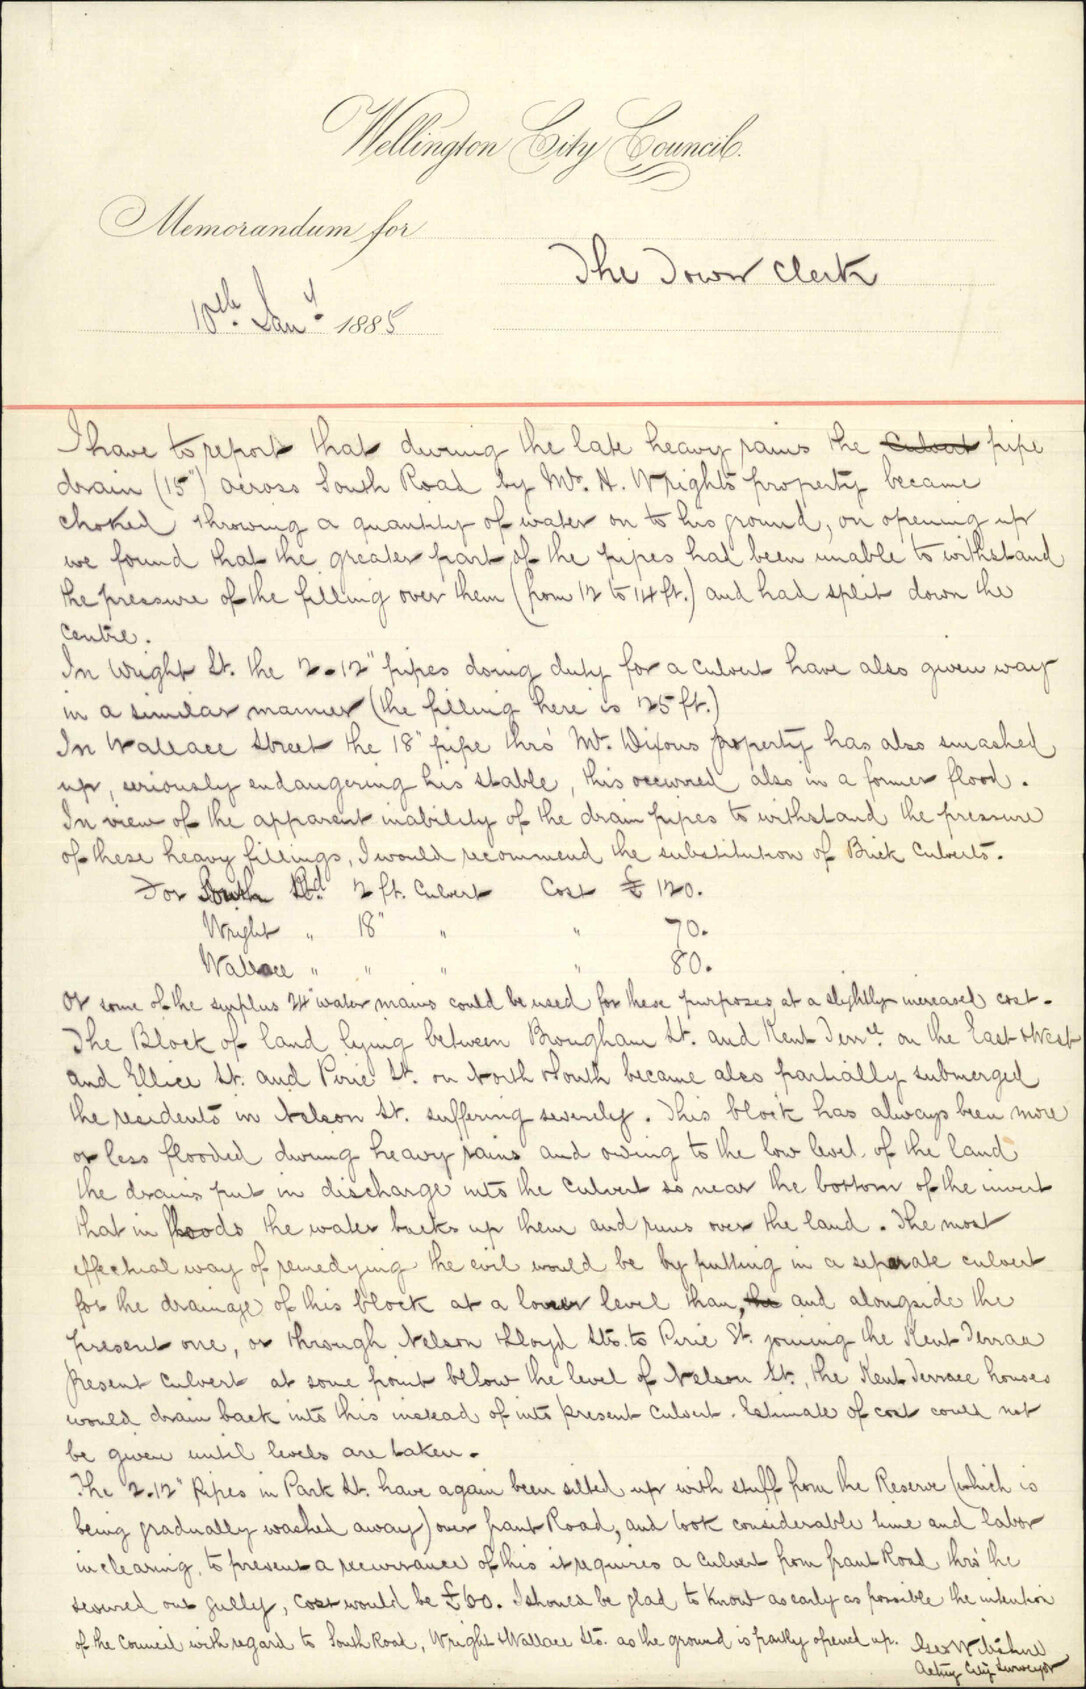 Wellington City Council.
Memorandum for
The Town Clerk
10th. Jany. 1885
I have to report that during the late heavy rains the culvert pipe
drain (15") across South Road by Mr. H. Wrights property became
choked throwing a quantity of water on to his ground, on opening up
we found that the greater part of the pipes had been unable to withstand
the pressure of the filling over them (from 12 to 14 ft.) and had split down the
centre.
In Wright St. the 2-12" pipes doing duty for a culvert have also given way
in a similar manner (the filling here is 25 ft.)
In Wallace Street the 18" pipe thro' Mr. Dixons property has also smashed
up, seriously endangering his stable, this occurred also in a former flood.
In view of the apparent inability of the drain pipes to withstand the pressure
of these heavy fillings, I would recommend the substitution of Brick Culverts.
For South Rd. 2 ft. Culvert Cost £ 120.
Wright " 18" " " 70.
Wallace " " " " 80.
Or some of the surplus 24" water mains could be used for these purposes at a slightly increased cost.
The Block of land lying between Brougham St. and Kent Terrce. on the East & West
and Ellice St. and Pirie St. on North & South became also partially submerged
the residents in Nelson St. suffering severely. This block has always been more
or less flooded during heavy rains and owing to the low level of the land
the drains put in discharge into the culvert so near the bottom of the invert
that in floods the water backs up them and runs over the land. The most
effectual way of remedying the evil would be by putting in a separate culvert
for the drainage of this block at a lower level than, the and alongside the
present one, or through Nelson & Lloyd Sts. to Pirie St. joining the Kent Terrace
present culvert at some point below the level of Nelson St., the Kent Terrace houses
would drain back into this instead of into present culvert. Estimate of cost could not
be given until levels are taken.
The 2-12" pipes in Park St. have again been silted up with stuff from the Reserve (which is
being gradually washed away) over grant Road, and took considerable time and labor
in clearing, to prevent a recurrance of this it requires a culvert from grant Road thro' the
scoured out gully, cost would be £60. I should be glad to know as early as possible the intention
of the Council with regard to South Road, Wright & Wallace Sts. as the ground is partly opened up.
Geo W
Acting City Surveyor